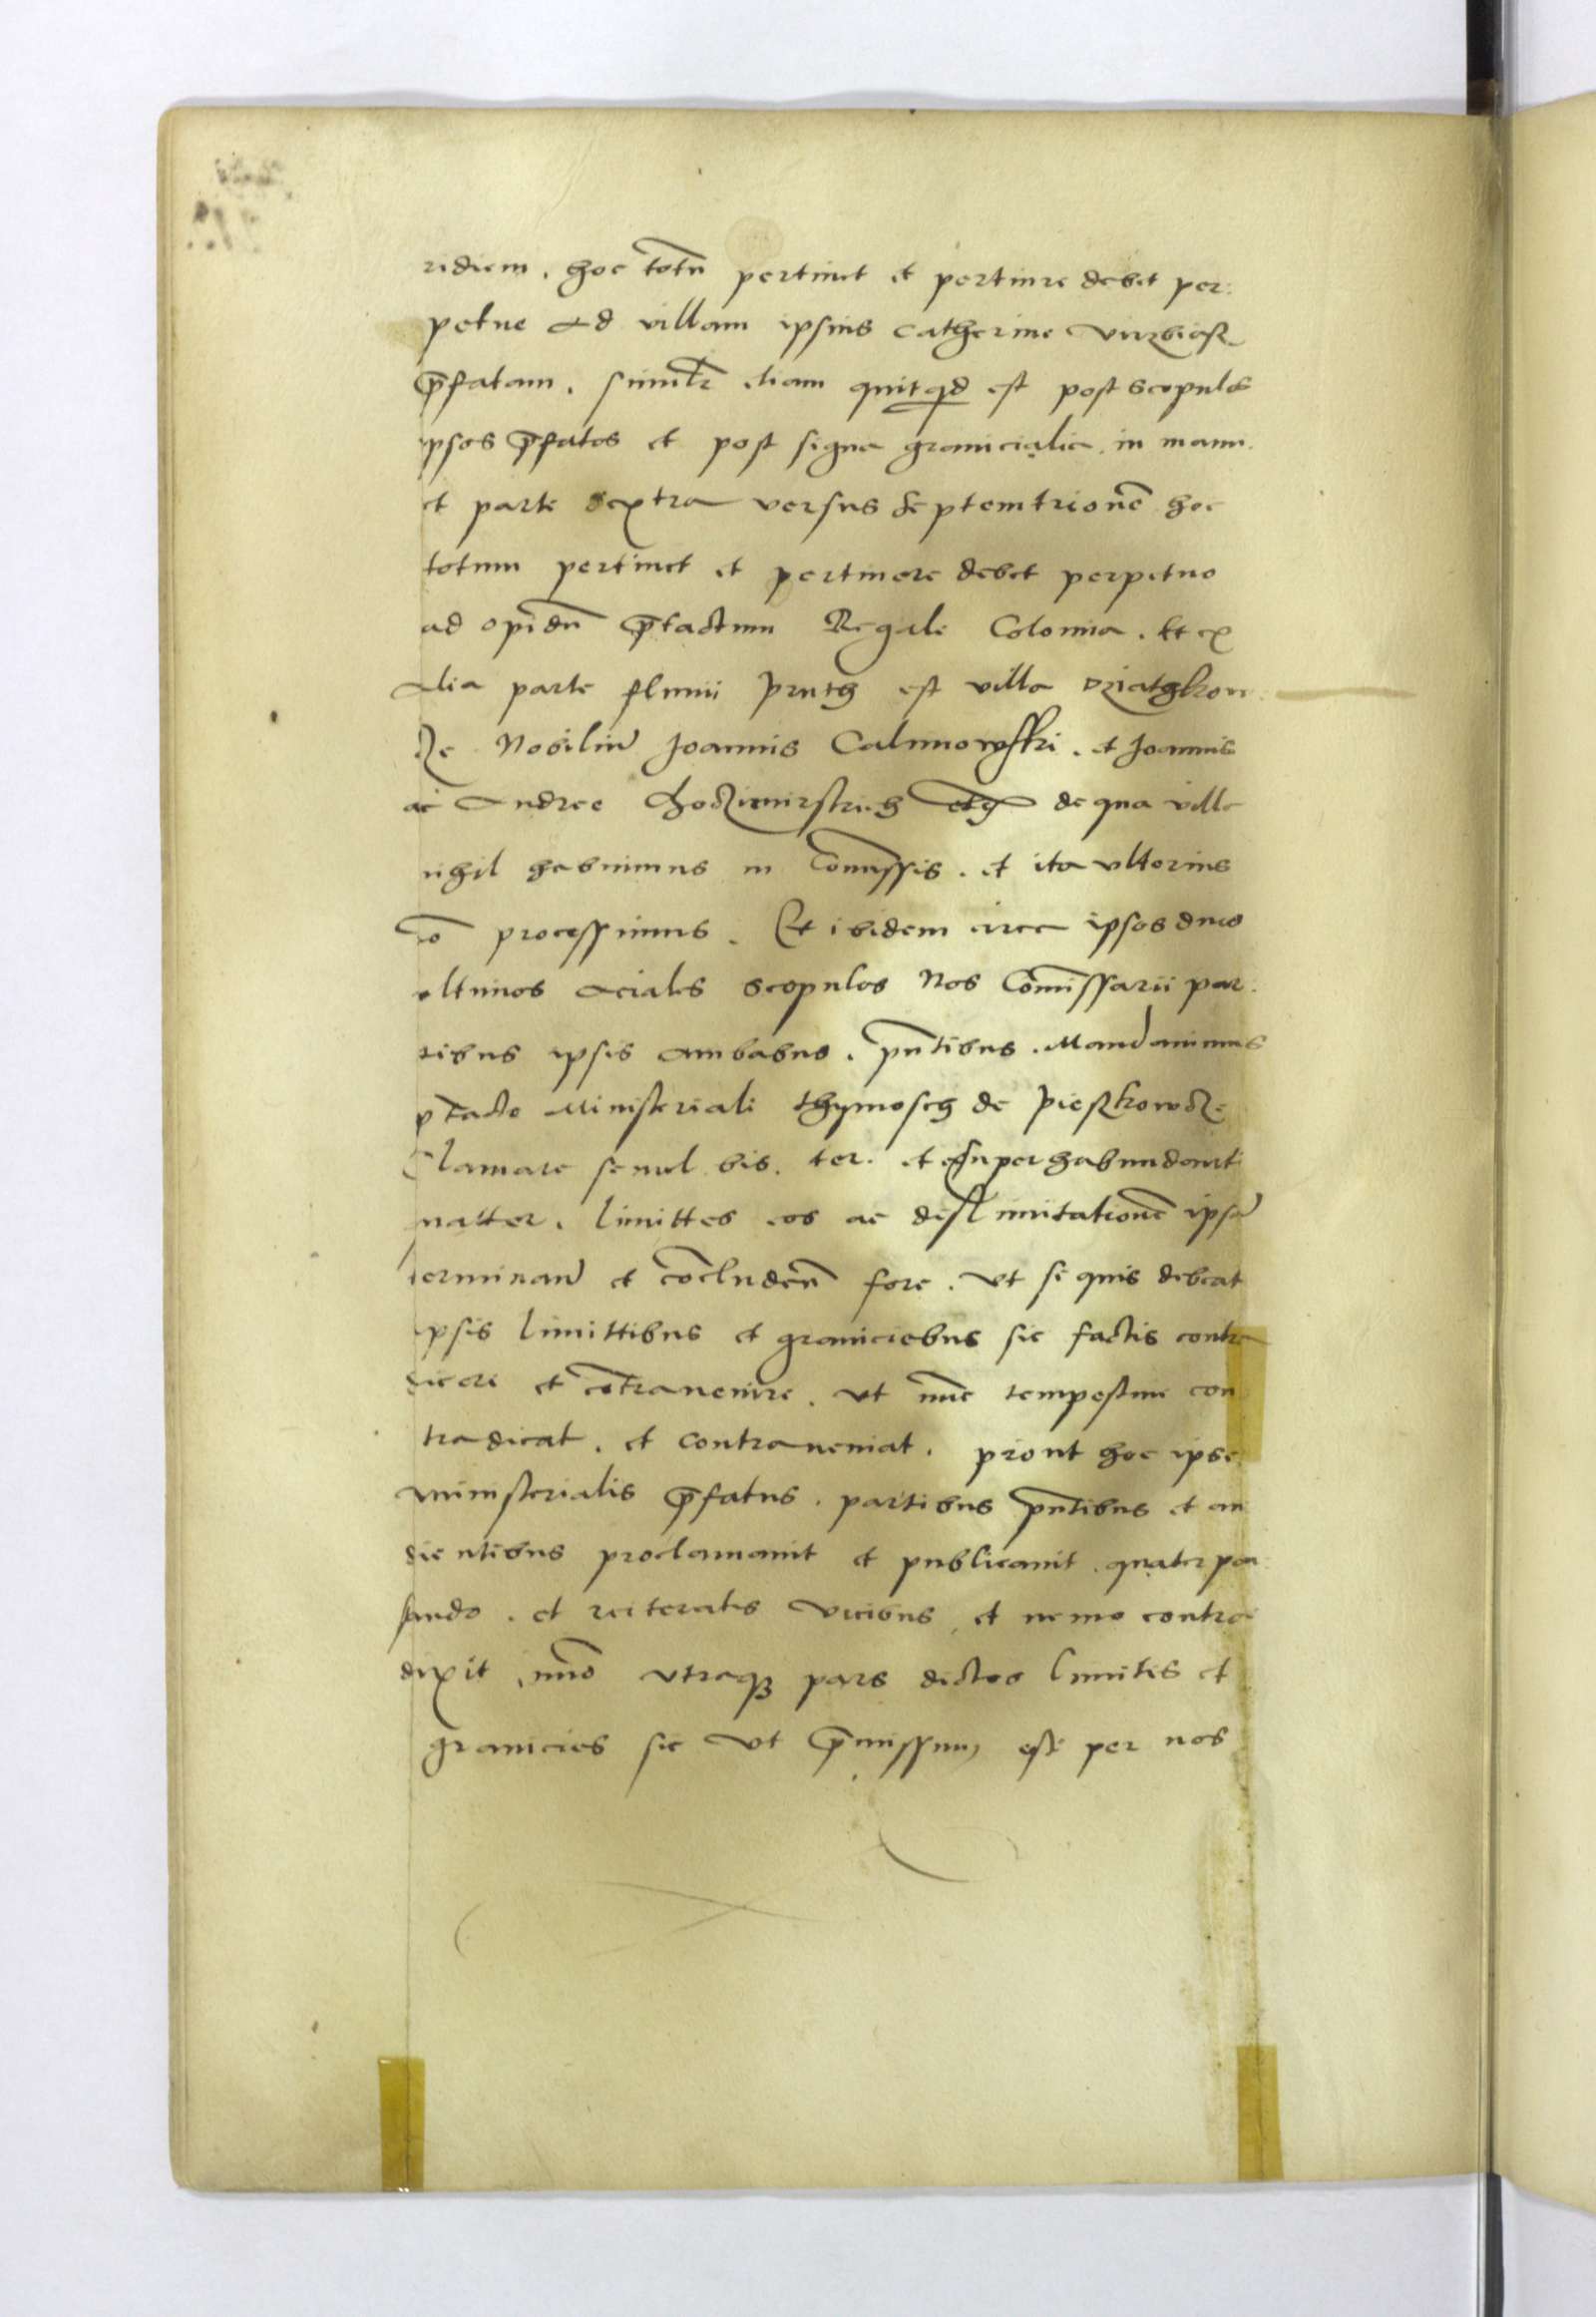 ridiem. hoc totũ pertinet et pertinere debet per:
petue ad villam ipsius Catherine Virzbiasz
p̄fatam. Similr etiam quitqid est post scopulos
ipsos p̄fatos et post signa granicialia in manu
et parte dextra versus septemtrionẽ hoc
totum pertinet et pertinere debet perpetuo
ad opidũ p̄tactum Regale Colomia. Et ex
alia parte fluuii Pruth est villa Dziathkow
cze Nobiliũ Joannis Calinowski. et Joannis
ac Andree Choczimirskich etc de qua villa
nihil habuimus in Com̃issis. et ita vlterius
nõ processimus. Et ibidem circa ipsos duos
vltimos aciales scopulos Nos Com̃issarii par:
tibus ipsis ambabus. pñtibus. Mandauimus
p̄tacto Ministeriali Thymosch de Pieszkowcze
Clamare semel bis. ter. et ex superhabundanti
quatter. limittes eos ac dislimitationẽ ipsã
terminari et cõcludeñ fore. Vt si quis debeat
ipsis limittibus et graniciebus sic factis contra
dicere et cõtrauenire. vt nũc tempestiue con
tradicat. et contraueniat. prout hoc ipse
ministerialis p̄fatus. partibus pñtibus et au
dientibus proclamauit et publicauit quater pau
sando. et reiteratis vicibus, et nemo contra
dixit, im̃o vtraqз pars dictos limites et
granicies sic vt p̄missum est per nos